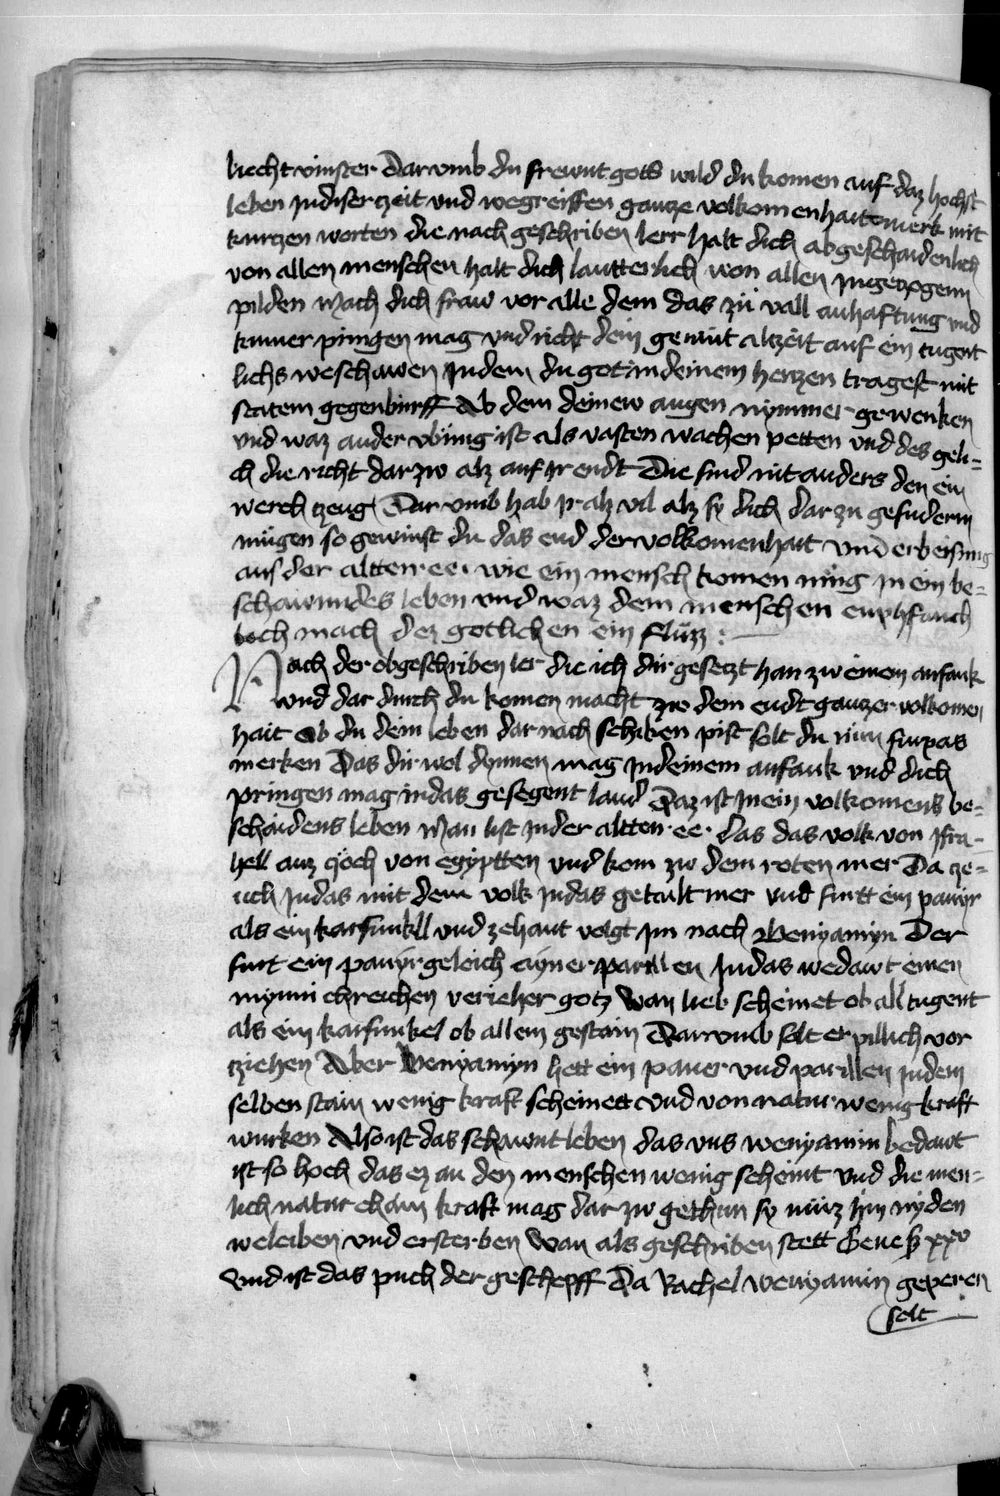 liecht vinster Darvmb du frewnt gots wild du komen auf daz hochst
leben Jn diser czeit vnd wegreiffen gancze volkomenhait So merk mit
kurczen worten die nach geschriben lerr halt dich abgeschaidenlich
von allen menschen halt dich lautterlich von allen Jngeczogenn
pilden Mach dich fraw vor alle dem das zu vall anhaftung vnd
kumer pringen mag vnd richt dein gemüt alczeit auf ein tugent
lichs weschawen Jn dem du got in deinem herczen tragest mit
statem gegenburff Ab dem deinew augen nymmer gewenken
vnd waz ander vbung ist als vasten wachen petten vnd des geli=
ch die richt dar zw alz auf Jr endt Die sind nit anders den ein
werch czeug Darvmb hab Jr alz vil alz sy dich dar zu gefudern
mugen so gewinst du das end der volkomenhait Vnd erbeisung
aus der altten .ee. wie ein mensch komen mug in ein be=
schawundes leben vnd waz dem menschen enphfanch
lech mach dez gotlichen ein fluzz :
Nach der obgeschriben ler die ich dir geseczt han zw einem anfank
vnd dar durch du komen macht zw dem endt ganczer volkomen
hait Ob du dein leben dar nach schiken pist solt du nün furpas
merken Das dir wol dynnen mag Jn deinem anfank vnd dich
pringen mag in das gesegent land Daz ist Jn ein volkomens be=
schaidens leben Man list Jn der altten .ee. das das volk von Jsra=
hell auz czöch von egyptten vnd kom zw dem roten mer Da cze=
uch Judas mit dem volk Jn das getailt mer vnd furtt ein panyr
als ein karfunkll vnd zehant volgt Jm nach Wenyamyn Der
furt ein panyr geleich eyner parillen Judas wedawt einen
mynnichreichen verieher gotz Wan lieb scheinet ob all tugent
als ein karfunkel ob allem gestain Darvmb solt er pillich vor
cziehen Aber Wenyamyn hett ein paner vnd parillen Jn dem
selben stain wenig kraft scheinett vnd von natur wenig kraft
wurken Also ist das schawnt leben das vns wenyamin bedawt
ist so hoch das ez an den menschen wenig scheint vnd die men=
lich natur chain kraft mag dar zw gethun sy müz hin nyden
weleiben vnd ersterben Wan als geschriben stett Genes xxxv
Vnd ist das puch der geschepff Da Rachel wenyamin geperen
solt